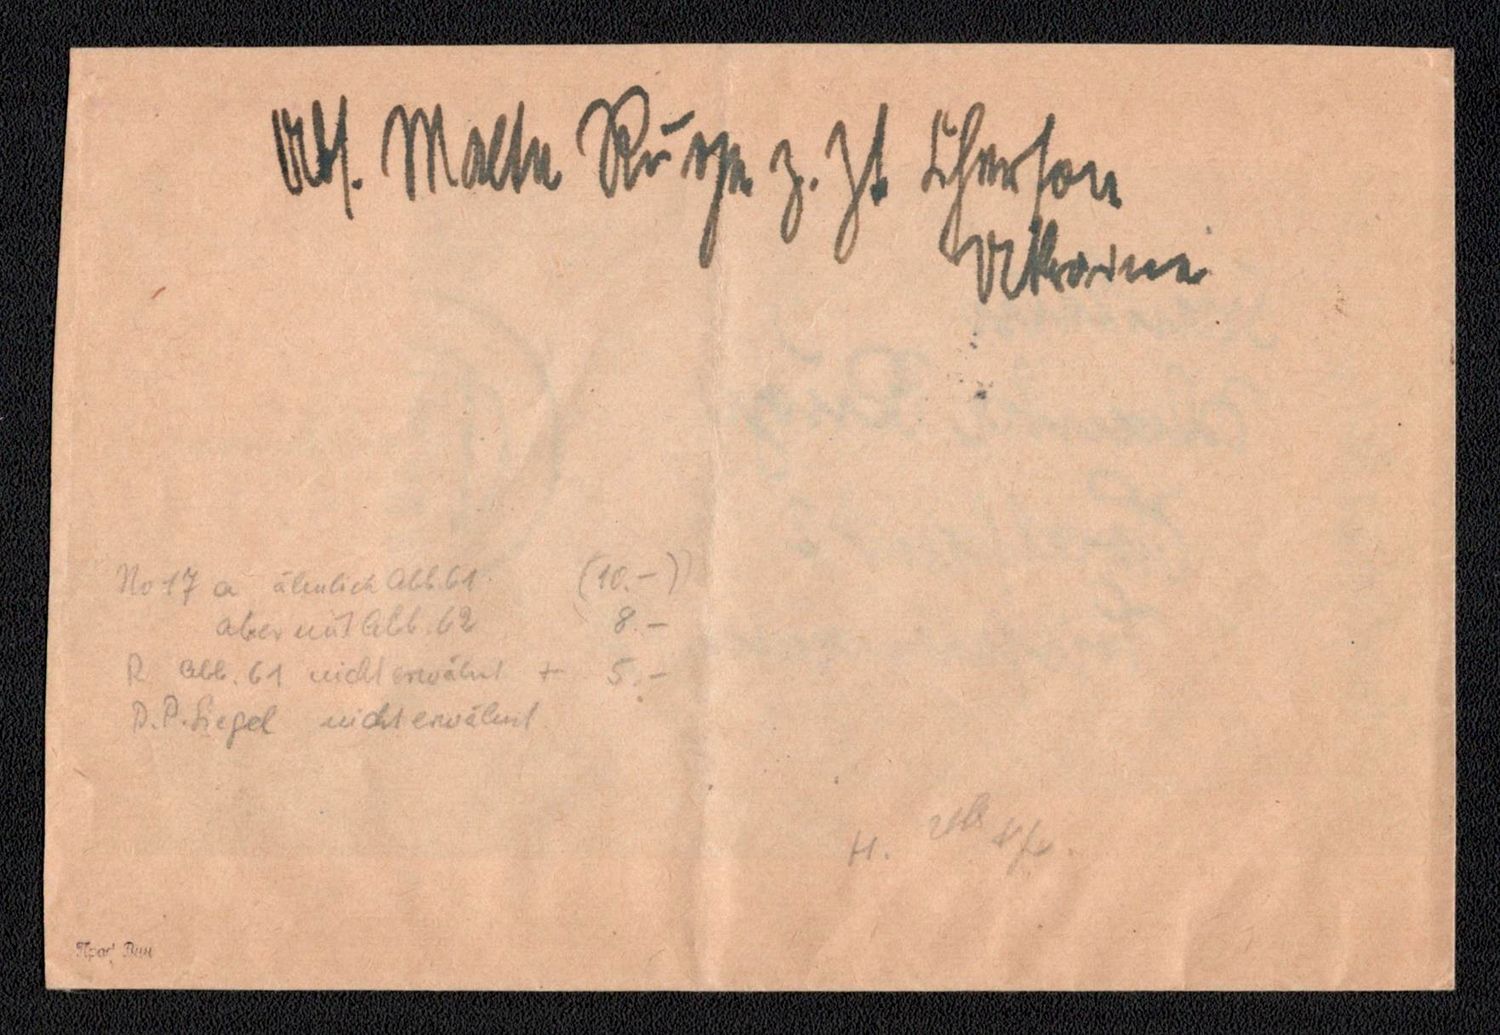 Abs. Malte Ruge z. Zt Cherson
Ukraine
No 17 a ähnlich Abb. 61 (10.-)
aber mit Abb. 62 8.-
R Abb. 61 nicht erwähnt + 5.-
D.P. Siegel nicht erwähnt
H.
Проф Вин